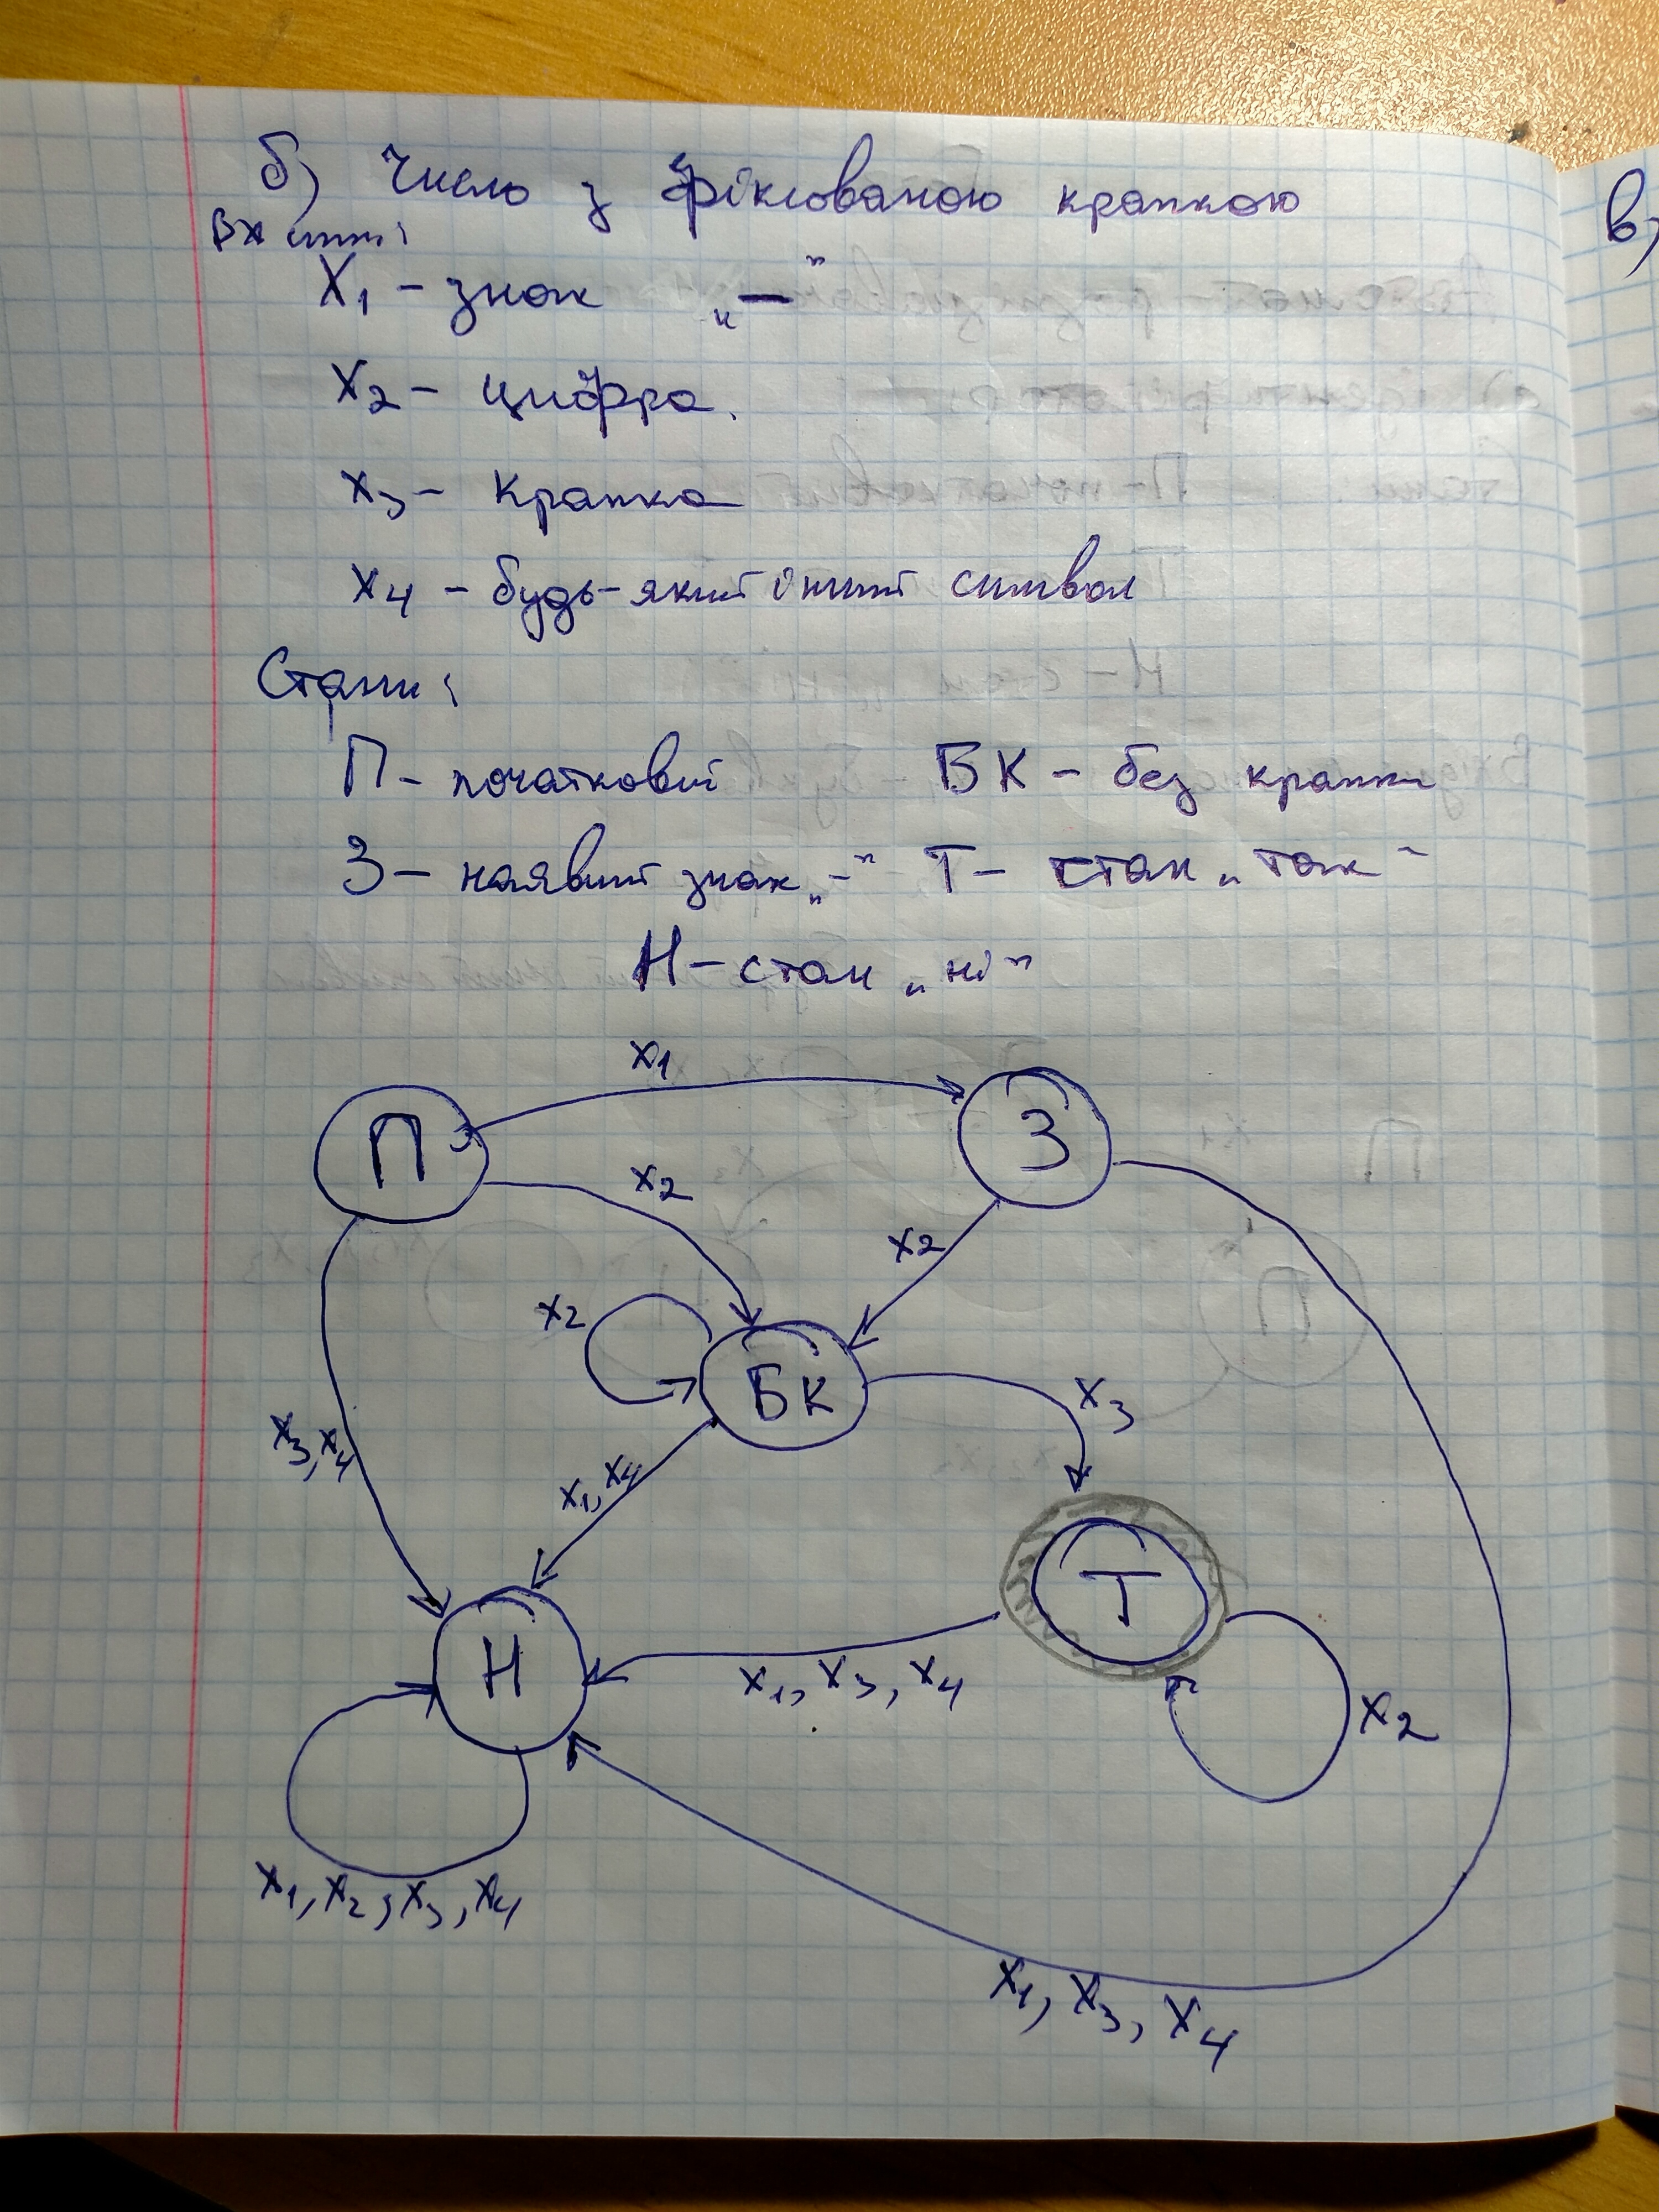 б) Число з фіксованою крапкою
в)
X1 – знак „–"
X2 – цифра.
X3 – Крапка
X4 – будь-який інший символ
Стани:
П – початковий БК – без крапки
З – наявний знак „-" Т – стан „так"
Н – стан „ні"
X1
П
З
X2
X2
X2
БК
X3
X3, X4
X1, X4
Т
Н
X1, X3, X4
X2
X1, X2, X3, X4
X1, X3, X4